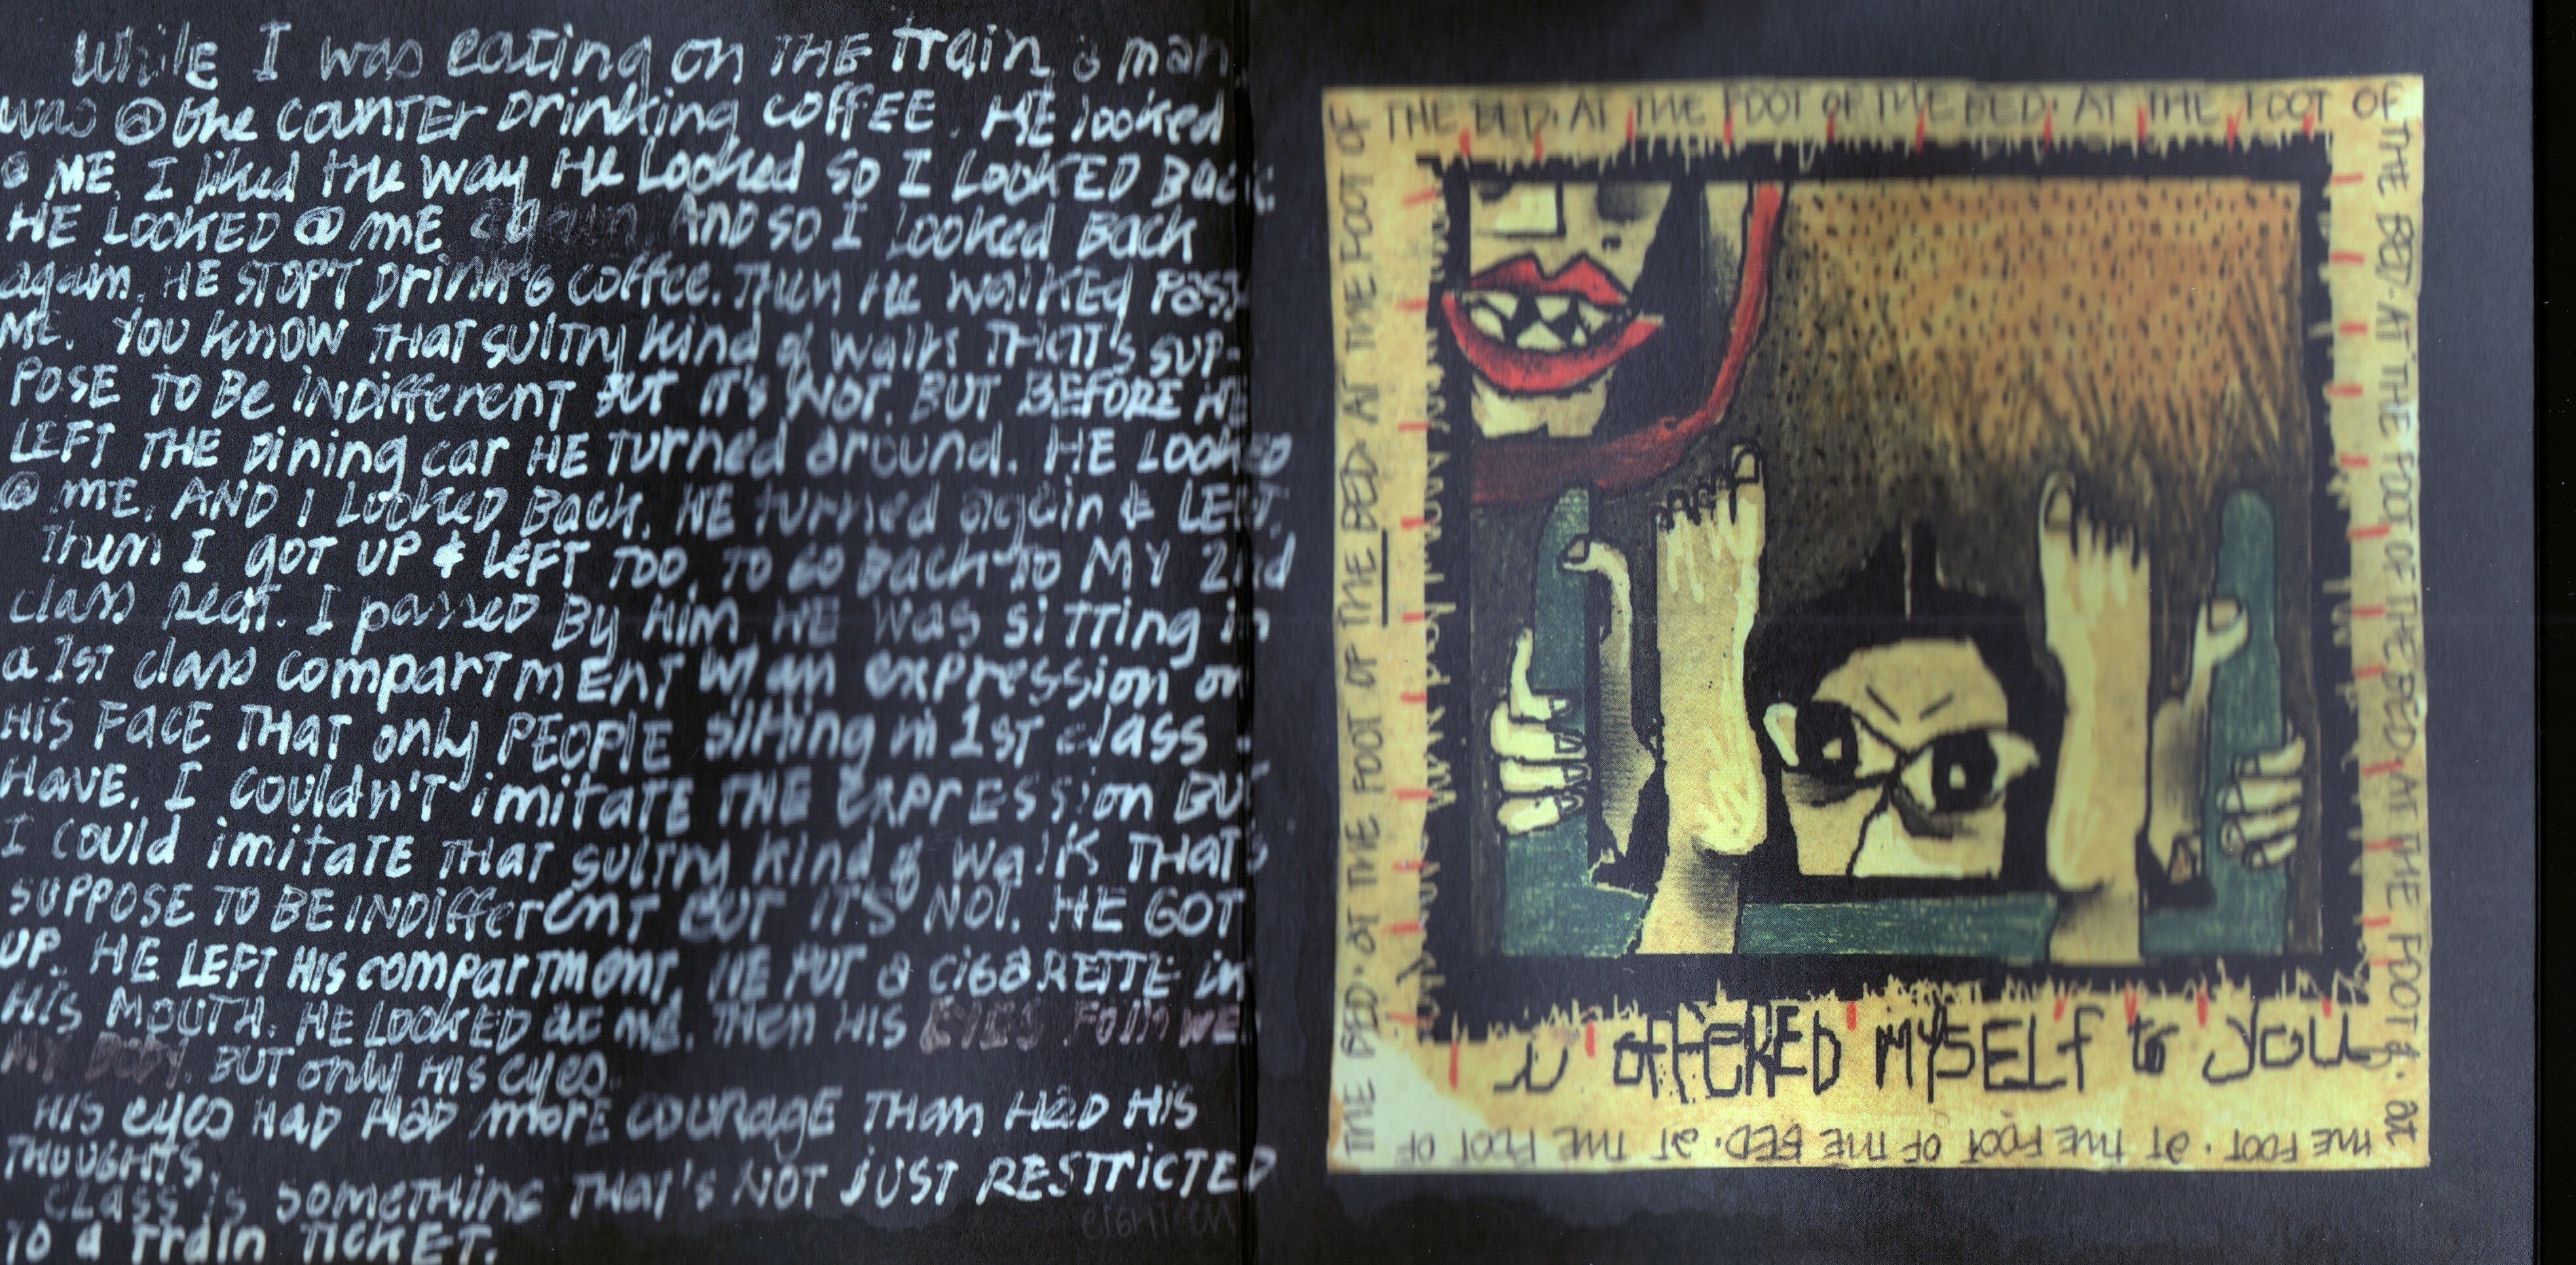 While I was eating on THE train a man
was @ the counter Drinking coffee. HE looked
@ ME. I liked the way He Looked so I LOOKED Back
HE LOOKED @ ME again. AND SO I Looked Back
again. HE STOPT Drink'g coffee. Then He walked Past
ME. YOU KNOW THAT sultry kind of walk THAT's SUP-
POSE TO Be iNDifferenT BUT IT'S NOT. BUT BEFORE HE
LEFT THE Dining car HE Turned around. HE LOOKED
@ ME. AND I LOOKED Back. HE turned again & LEFT.
Then I GOT UP & LEFT TOO. TO GO Back to MY 2nd
class seat. I passed By Him. HE was siTTing in
a 1st class comparTmEnT w/ an expression on
HIS FACE THAT only PEOPlE sitting in 1st class
HAVE. I couldn't imitaTE THE ExprEssion BUT
I could imitaTE THAT sultry kind of walk THAT's
SUPPOSE TO BE INDifferEnT BUT IT'S NOT. HE GOT
UP. HE LEFT His comparTmEnT. HE PUT a cigaRETTE in
His MOUTH. HE LOOKED at me. Then His EYES FOllOWED
MY BODY. BUT only His eyes.
His eyes HAD HAD morE couRagE THan HaD His
THOUGHTS.
CLASS is someTHing THAT's NOT JUST RESTricTED
TO a Train TicKET.
eighteen
THE BED. AT THE FOOT OF THE BED. AT THE FOOT OF
THE BED. AT THE FOOT OF THE BED. AT THE FOOT
at
THE FOOT. at THE FOOT OF THE BED. at THE FOOT OF
THE BED. at THE FOOT OF THE BED. AT THE FOOT OF
i offERED MYSELf to you